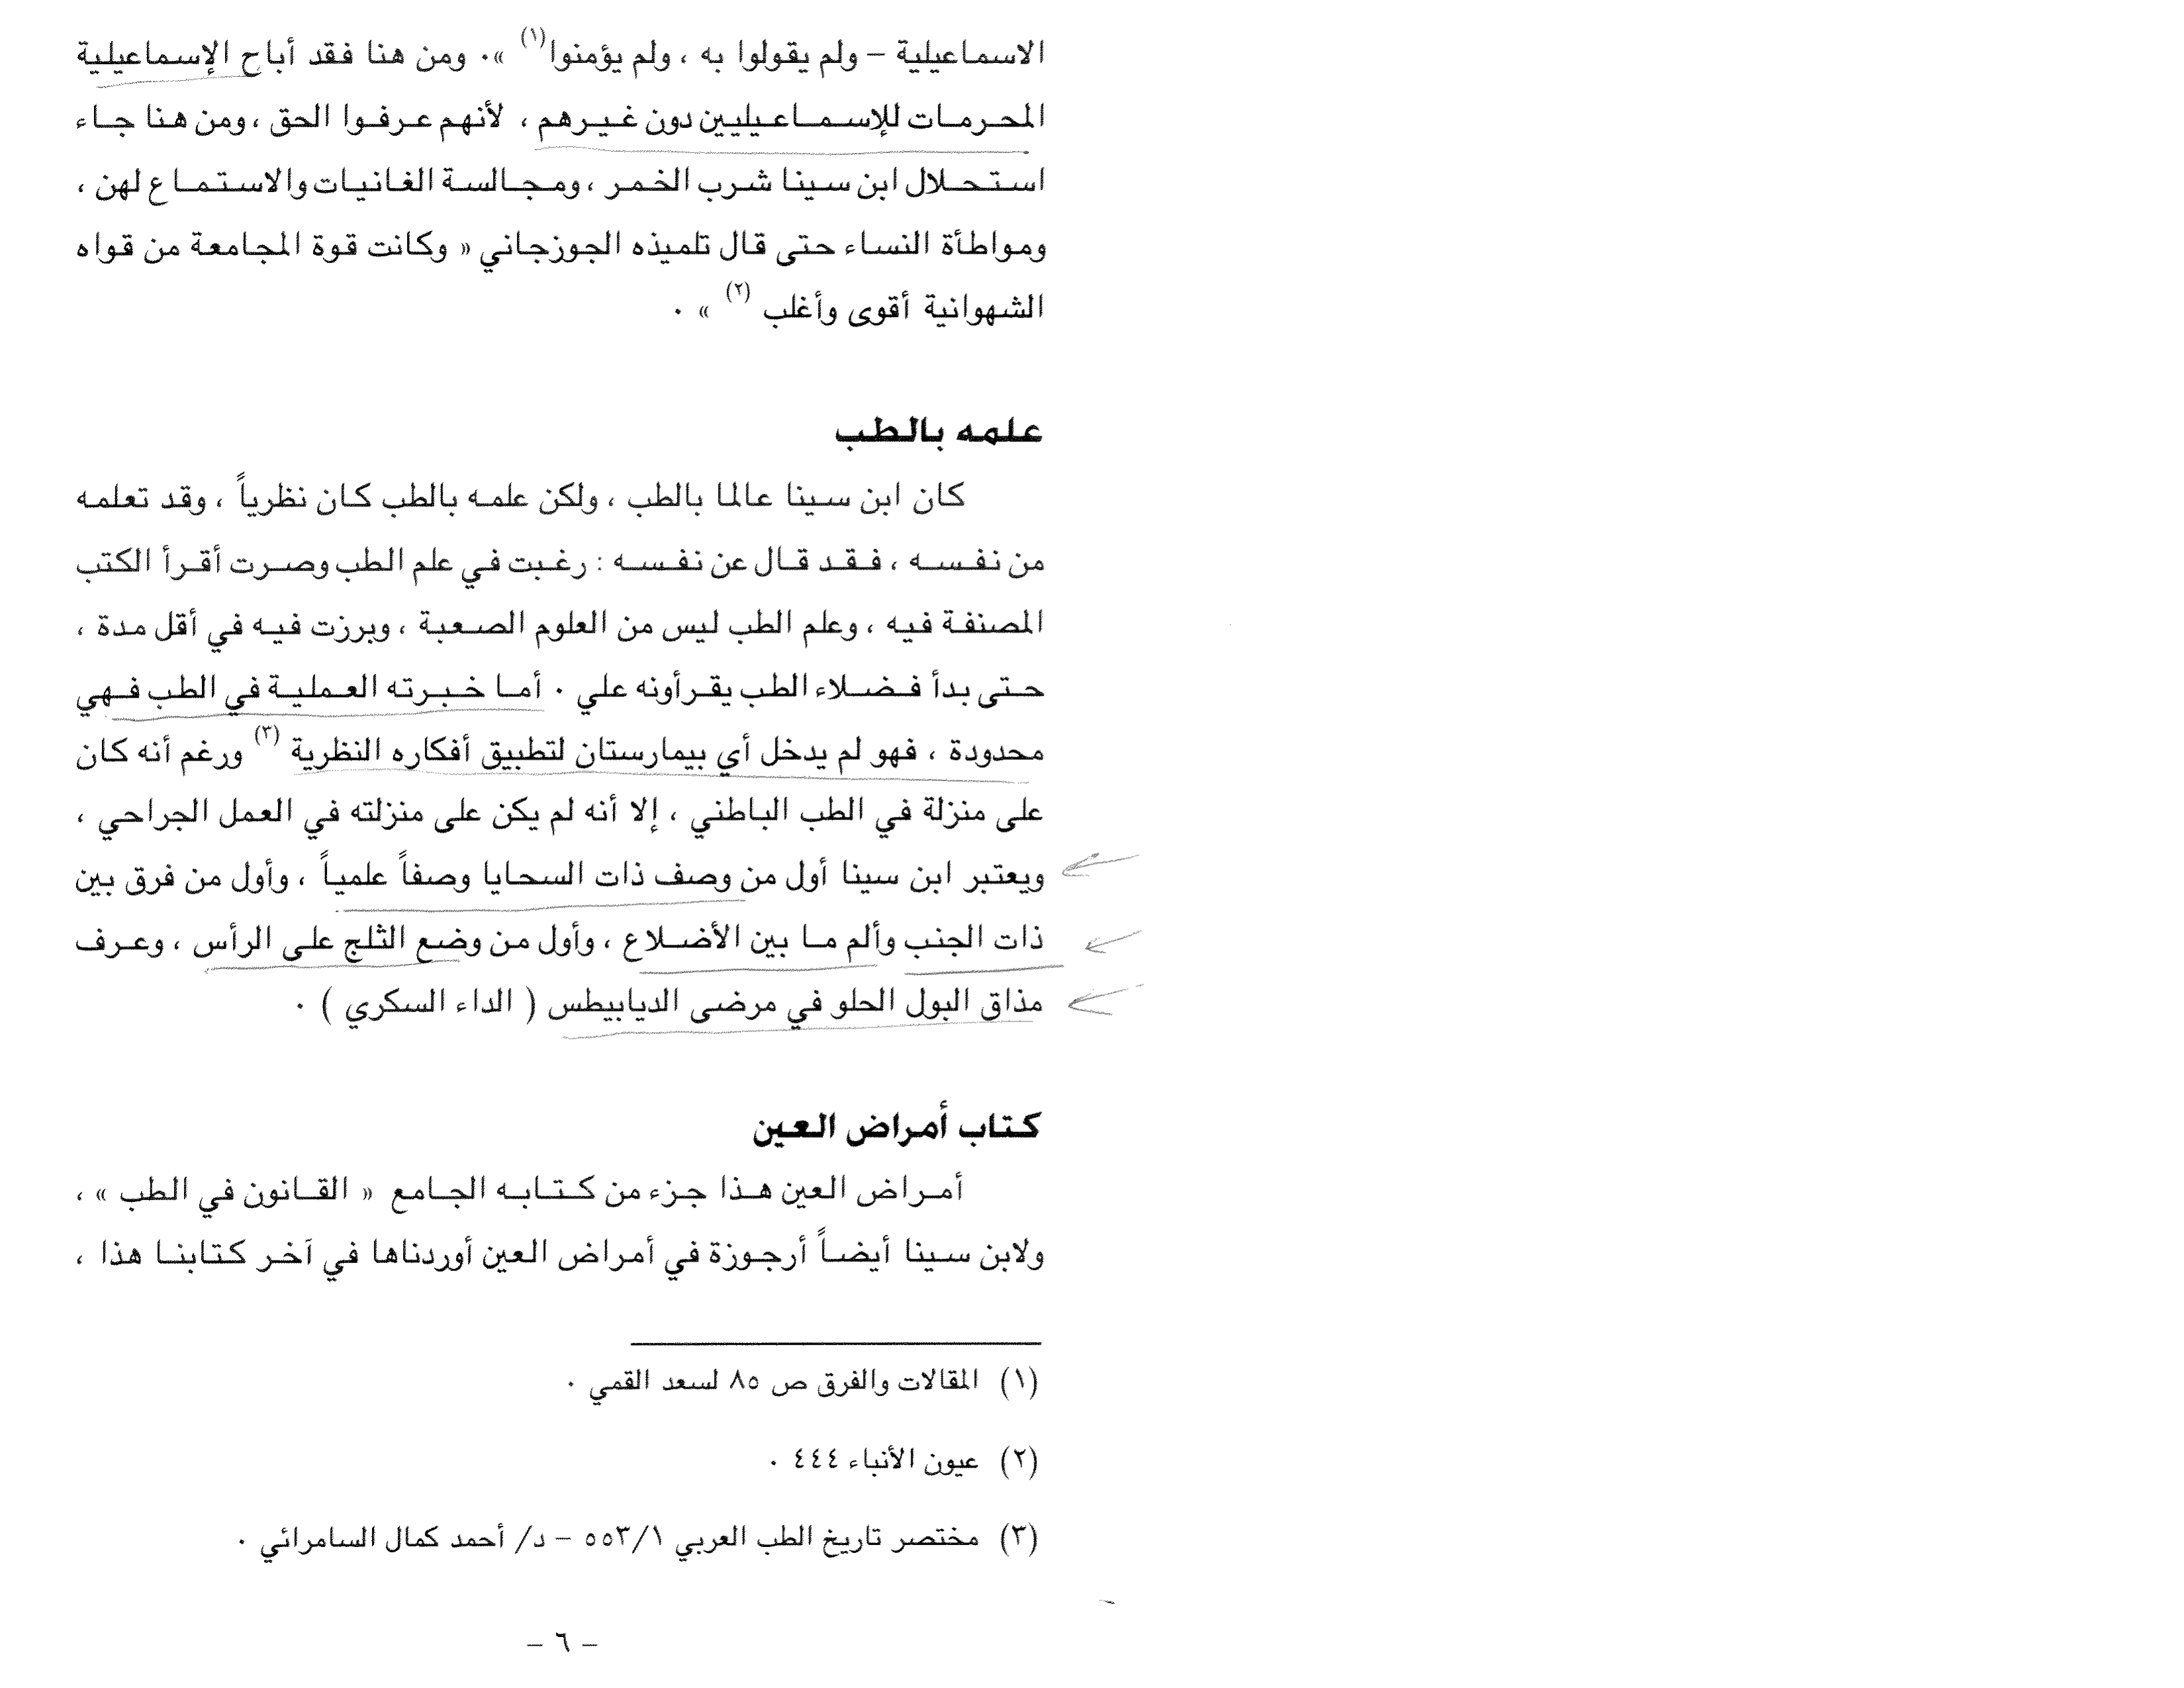 الاسماعيلية – ولم يقولوا به ، ولم يؤمنوا(١) »٠ ومن هنا فقد أباح الإسماعيلية
المحرمات للإسماعيليين دون غيرهم ، لأنهم عرفوا الحق ، ومن هنا جاء
استحلال ابن سينا شرب الخمر ، ومجالسة الغانيات والاستماع لهن ،
ومواطأة النساء حتى قال تلميذه الجوزجاني « وكانت قوة المجامعة من قواه
الشهوانية أقوى وأغلب (٢) » ٠
علمه بالطب
كان ابن سينا عالما بالطب ، ولكن علمه بالطب كان نظرياً ، وقد تعلمه
من نفسه ، فقد قال عن نفسه : رغبت في علم الطب وصرت أقرأ الكتب
المصنفة فيه ، وعلم الطب ليس من العلوم الصعبة ، وبرزت فيه في أقل مدة ،
حتى بدأ فضلاء الطب يقرأونه علي ٠ أما خبرته العملية في الطب فهي
محدودة ، فهو لم يدخل أي بيمارستان لتطبيق أفكاره النظرية (٣) ورغم أنه كان
على منزلة في الطب الباطني ، إلا أنه لم يكن على منزلته في العمل الجراحي ،
ويعتبر ابن سينا أول من وصف ذات السحايا وصفاً علمياً ، وأول من فرق بين
ذات الجنب وألم ما بين الأضلاع ، وأول من وضع الثلج على الرأس ، وعرف
مذاق البول الحلو في مرضى الديابيطس ( الداء السكري ) ٠
كتاب أمراض العين
أمراض العين هذا جزء من كتابه الجامع « القانون في الطب » ،
ولابن سينا أيضاً أرجوزة في أمراض العين أوردناها في آخر كتابنا هذا ،
(١) المقالات والفرق ص ٨٥ لسعد القمي ٠
(٢) عيون الأنباء ٤٤٤ ٠
(٣) مختصر تاريخ الطب العربي ٥٥٣/١ – د/ أحمد كمال السامرائي ٠
– ٦ –